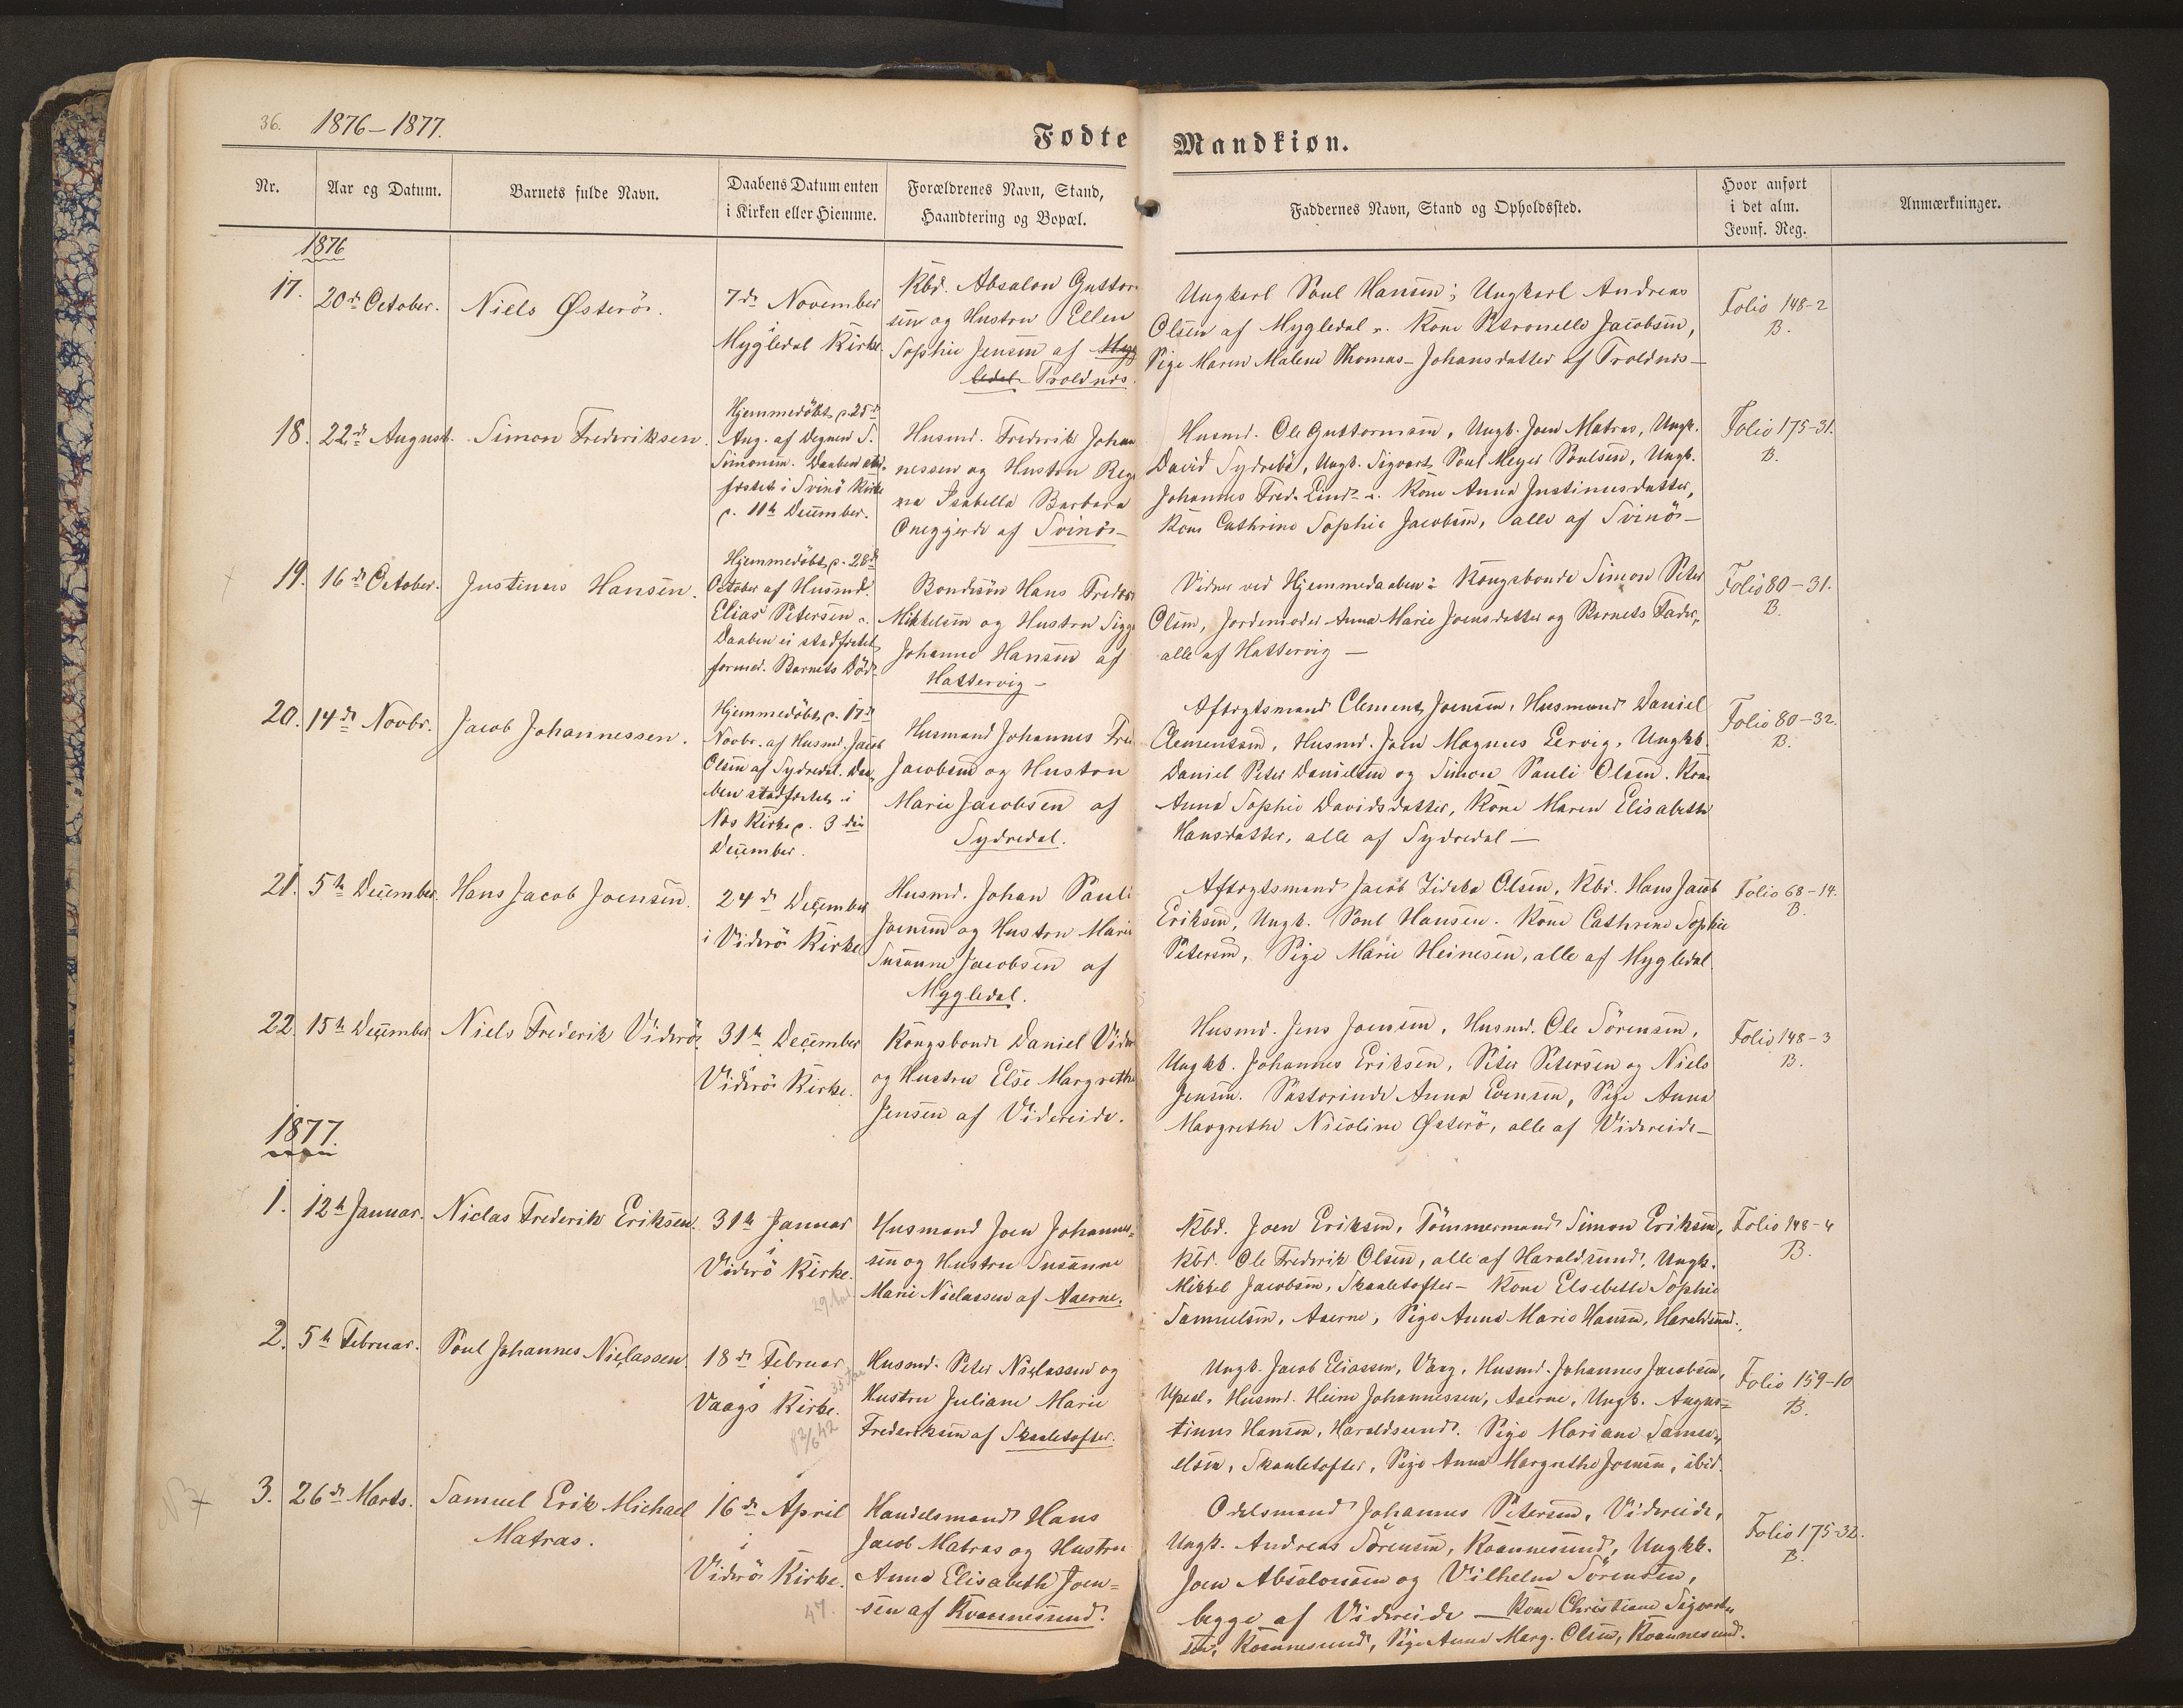 36. 1876–1877.
Fødte Mandkiøn.
Nr.
Aar og Datum.
Barnets fulde Navn.
Daabens Datum enten
i Kirken eller Hiemme.
Forældrenes Navn, Stand,
Haandtering og Bopæl.
Faddernes Navn, Stand og Opholdssted.
Hvor anført
i det alm.
Jevnf. Reg.
Anmærkninger.
1876
17.
20de October.
Niels Østerö.
7de November
i
Mygledal Kirke
Kbd. Absalon Guttorm
sen og Hustru Ellen
Sophie Jensen af Myg
ledal Troldnæs.
Ungkarl Poul Hansen; Ungkarl Andreas
Olsen af Mygledal. Kone Petronelle Jacobsen,
Pige Maren Malene Thomas-Johansdatter af Troldnæs—
Folio 148-2
B.
18.
22de August.
Simon Frederiksen.
Hjemmedöbt d. 25de
Aug. af Degnen S.
Simonsen. Daaben stad-
fæstet i Svinö Kirke
d. 11te December.
Husmd. Frederik Johan
nessen og Hustru Regi
na Isabella Barbara
Oneggjerde af Svinö—
Husmd. Ole Guttormsen, Ungk. Joen Matras, Ungk.
David Sydrebö, Ungk. Sigvart Poul Meyer Poulsen, Ungk.
Johannes Fred. Lind. Kone Anna Justinusdatter,
Kone Cathrine Sophie Jacobsen, alle af Svinö—
Folio 175-31.
B.
19.
16de October.
Justinus Hansen.
Hjemmedöbt d. 28de
October af Husmd.
Elias Petersen.
Daaben ei stadfæstet
formed. Barnets Död.
Bondesön Hans Fredrik
Mikkelsen og Hustru Sigga
Johanne Hansen af
Hattervig—
Vidner ved Hjemmedaaben: Kongsbonde Simon Peter
Olsen, Jordemoder Anna Marie Joensdatter og Barnets Fader,
alle af Hattervig—
Folio 80-31.
B.
20.
14de Novbr.
Jacob Johannessen.
Hjemmedöbt d. 17de
Novbr. af Husmd. Jacob
Olsen af Sydredal. Daa-
ben stadfæstet i
Næs Kirke d. 3die
December.
Husmand Johannes Fre
Jacobsen og Hustru
Marie Jacobsen af
Sydredal.
Aftægtsmand Clement Joensen, Husmand Daniel
Clementsen, Husmd. Joen Magnus Lervig, Ungkk.
Daniel Peter Danielsen og Simon Pauli Olsen. Kone
Anna Sophie Davidsdatter, Kone Maren Elisabeth
Hansdatter, alle af Sydredal—
Folio 80-32.
B.
21.
5te December.
Hans Jacob Joensen.
24de December
i Viderö Kirke
Husmd. Johan Pauli
Joensen og Hustru Marie
Susanne Jacobsen af
Mygledal.
Aftægtsmand Jacob Olsen, Kbd. Hans Jacob
Eriksen, Ungk. Poul Hansen. Kone Cathrine Sophie
Petersen, Pige Marie Heinesen, alle af Mygledal.
Folio 68-14.
B.
22.
15te December.
Niels Frederik Viderö.
31te December
i
Viderö Kirke.
Kongsbonde Daniel Vider
og Hustru Else Margrethe
Jensen af Videreide.
Husmd. Jens Joensen, Husmd. Ole Sörensen,
Ungkk. Johannes Eriksen, Peter Petersen og Niels
Jensen. Pastorinde Anna Evensen, Pige Anna
Margrethe Nicoline Østerö, alle af Videreide—
Folio 148-3
B.
1877.
1.
12te Januar.
Niclas Frederik Eriksen.
31te Januar
i
Viderö Kirke.
Husmand Joen Johannes-
sen og Hustru Susanne
Marie Niclassen af Aaerne.
Kbd. Joen Eriksen, Tömmermand Simon Eriksen,
Kbd. Ole Frederik Olsen, alle af Haraldsund, Ungk.
Mikkel Jacobsen, Skaaletofter— Kone Elsebeth Sophie
Samuelsen, Aaerne, Pige Anna Marie Hansen, Haraldsund.
Folio 148-4
B.
2.
5te Februar.
Poul Johannes Niclassen.
18de Februar
i
Vaags Kirke.
Husmd. Peter Niclassen og
Hustru Juliane Marie
Frederiksen af Skaaletofter.
Ungk. Jacob Eliassen, Vaag, Husmd. Johannes Jacobsen,
Husmd. Heine Johannessen, Aaerne, Ungk. Augus-
tinus Hansen, Haraldsund. Pige Mariane Samu-
elsen, Skaaletofter, Pige Anna Margrethe Joensen, ibid.
Folio 159-10
B.
3.
26de Marts.
Samuel Erik Michael
Matras.
16de April
i
Viderö Kirke.
47.
Handelsmand Hans
Jacob Matras og Hustru
Anna Elisabeth Joen-
sen af Kvannesund.
Odelsmand Johannes Petersen, Videreide,
Ungk. Andreas Sörensen, Kvannesund, Ungkk.
Joen Absalonsen og Vilhelm Sörensen,
begge af Videreide— Kone Christiane Sigvart-
sen, Kvannesund, Pige Anna Marg. Olsen, Kvannesund.
Folio 175-32.
B.